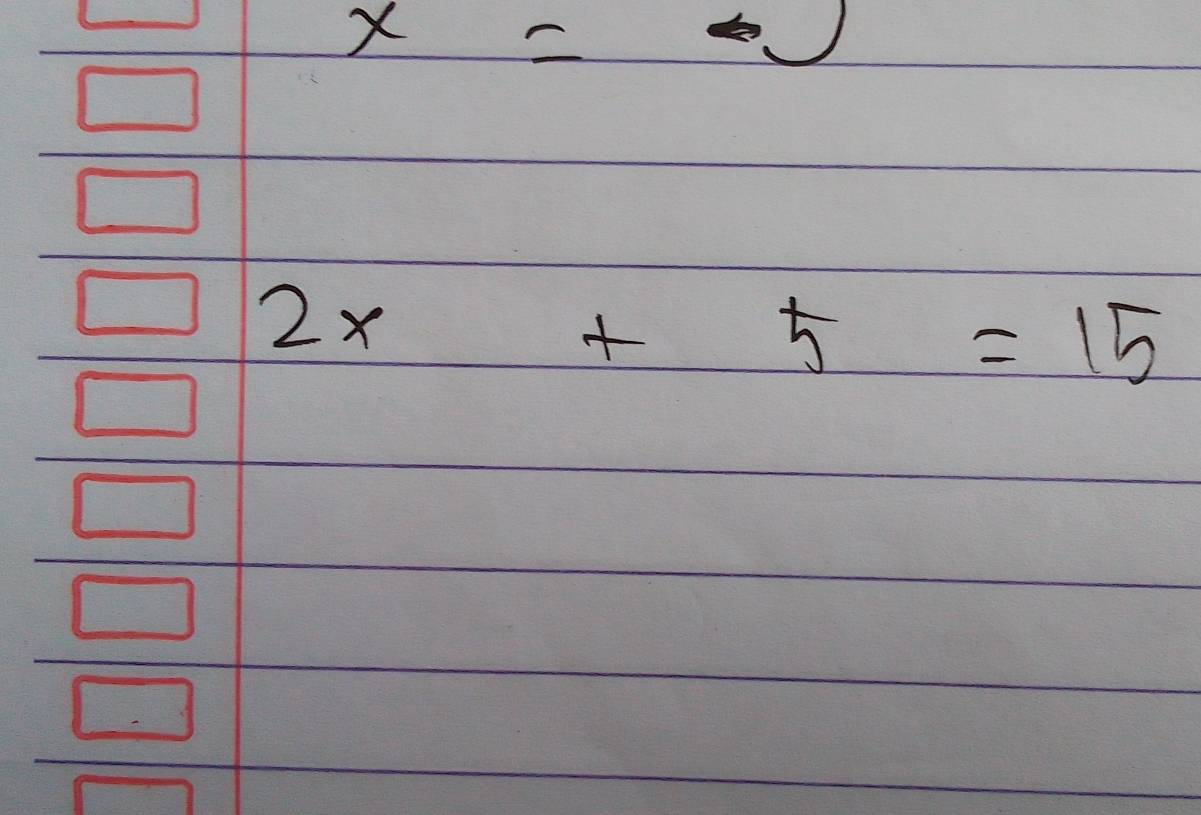 x =
2x + 5 = 15